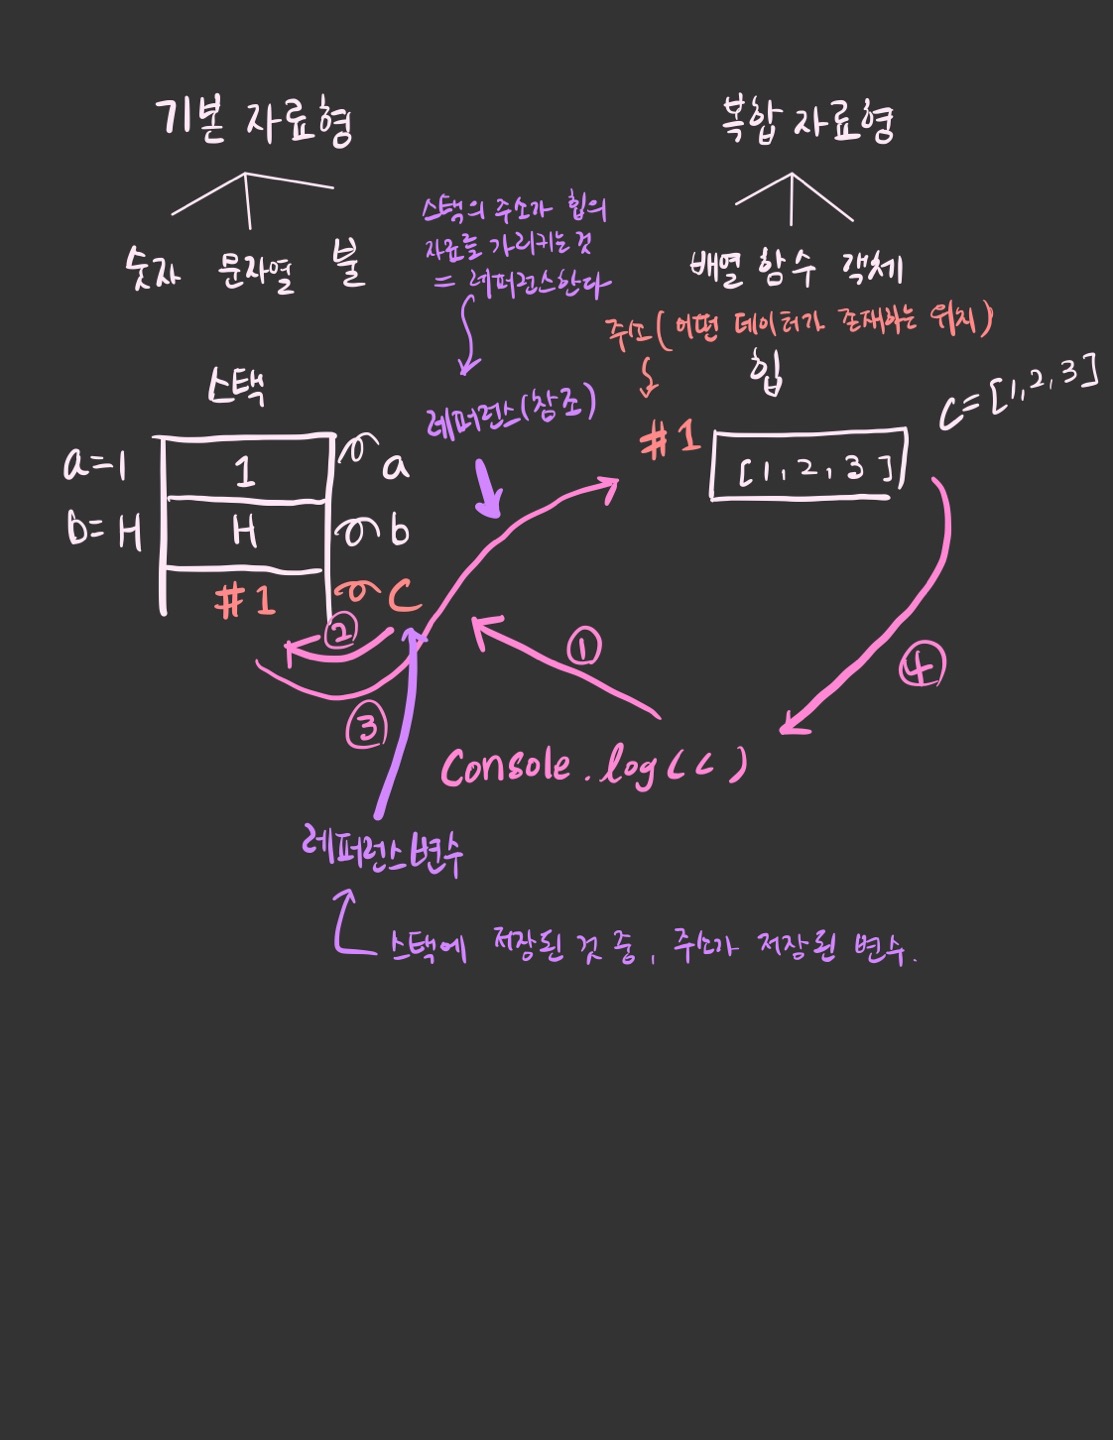 기본 자료형
숫자 문자열 불
복합 자료형
배열 함수 객체
스택의 주소가 힙의
자료를 가리키는 것
= 레퍼런스한다
레퍼런스(참조)
주소(어떤 데이터가 존재하는 위치)
스택
힙
c=[1,2,3]
#1
[1,2,3]
a=1
1
a
b=H
H
b
#1
C
②
①
③
④
Console.log(c)
레퍼런스변수
스택에 저장된 것 중, 주소가 저장된 변수.